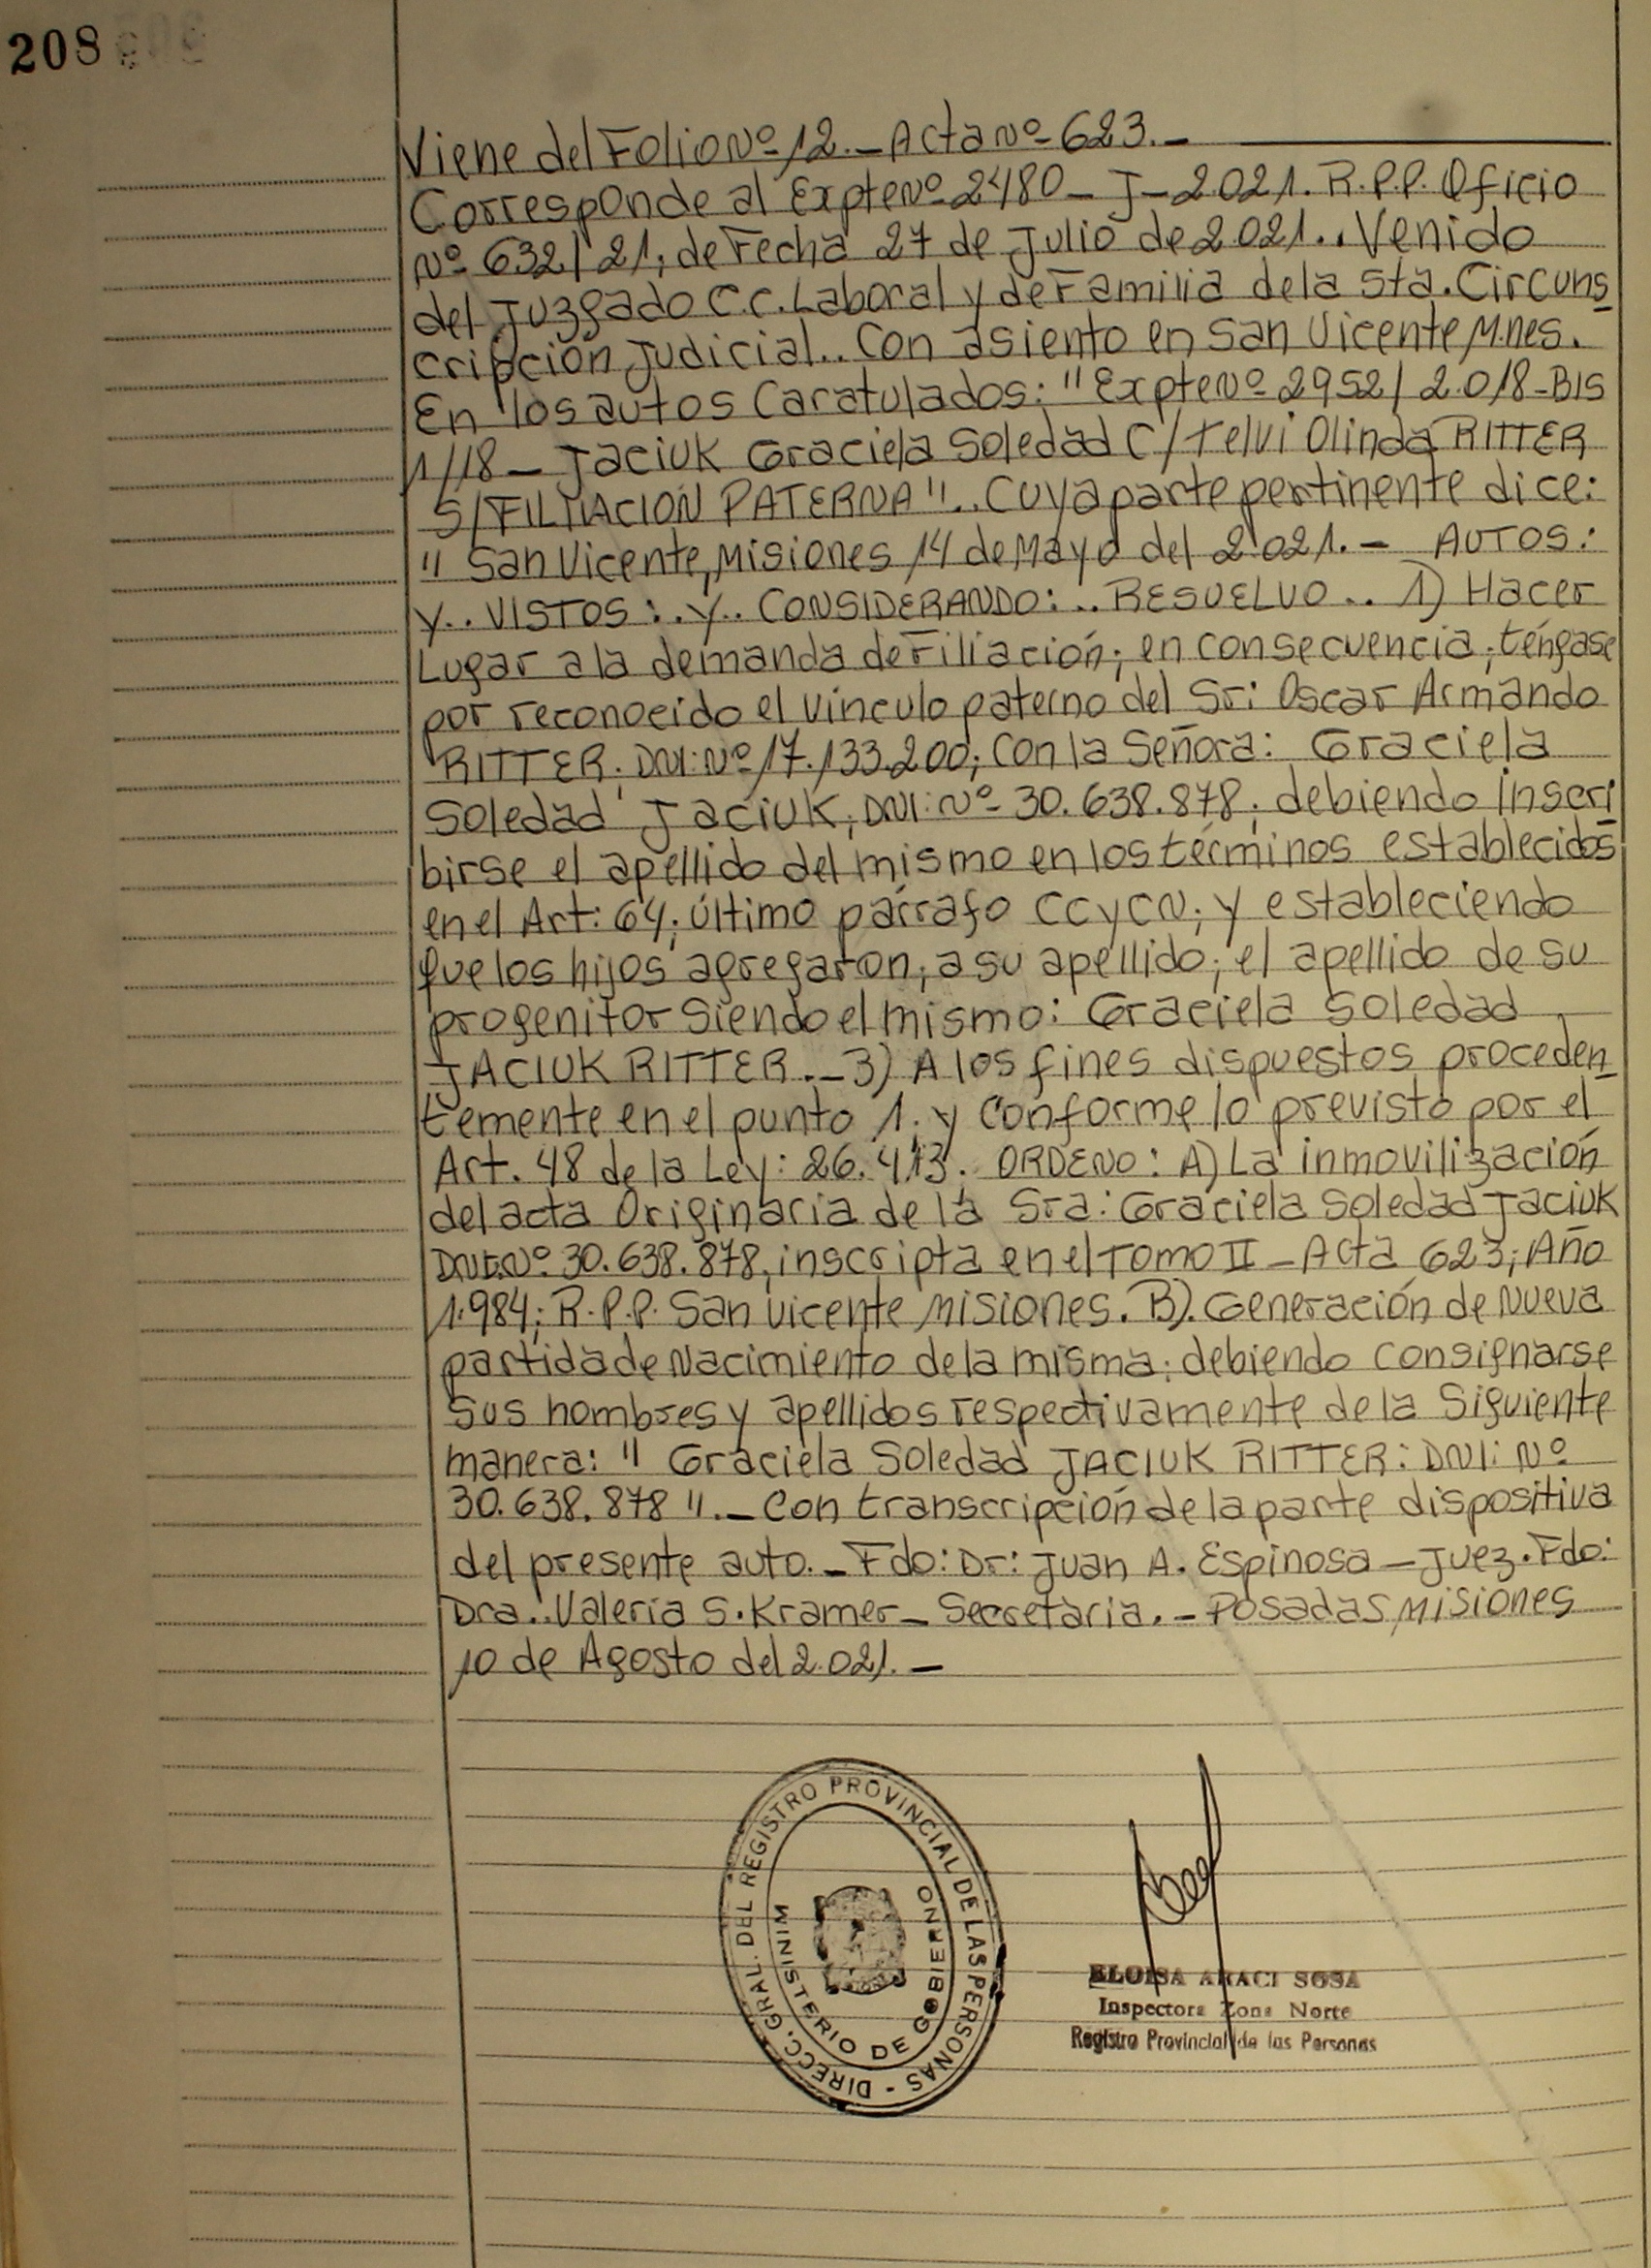 208
Viene del Folio Nº 12.- Acta Nº 623.-
Corresponde al Expte Nº 2480- J- 2.021. R.P.P. Oficio
Nº 632/21, de Fecha 27 de Julio de 2.021.. Venido
del Juzgado C.C. Laboral y de Familia de la 5ta. Circuns
cripción Judicial.. Con asiento en San Vicente M.nes.
En los autos Caratulados: "Expte Nº 2952/2.018-BIS
1/18 - Jaciuk Graciela Soledad C/Telvi Olinda RITTER
S/FILIACION PATERNA".. Cuya parte pertinente dice:
"San Vicente, Misiones 14 de Mayo del 2.021.- AUTOS:
Y.. VISTOS:. Y.. CONSIDERANDO:.. RESUELVO.. 1) Hacer
Lugar a la demanda de Filiación; en consecuencia; téngase
por reconocido el vinculo paterno del Sr: Oscar Armando
RITTER. DNI: Nº 17.133.200; con la Señora: Graciela
Soledad Jaciuk, DNI: Nº 30.638.878; debiendo inscri
birse el apellido del mismo en los términos establecidos
en el Art: 64; último párrafo CCyCN; y estableciendo
que los hijos agregaron; a su apellido; el apellido de su
progenitor siendo el mismo: Graciela Soledad
JACIUK RITTER.- 3) A los fines dispuestos proceden
temente en el punto 1. y conforme lo previsto por el
Art. 48 de la Ley: 26.413. ORDENO: A) La inmovilización
del acta Originaria de la Sra: Graciela Soledad Jaciuk
DNI: Nº 30.638.878, inscripta en el Tomo II - Acta 623; Año
1.984; R.P.P. San Vicente Misiones. B). Generación de Nueva
partida de Nacimiento de la misma; debiendo consignarse
sus nombres y apellidos respectivamente de la siguiente
manera: " Graciela Soledad JACIUK RITTER: DNI: Nº
30.638.878 ".- Con transcripción de la parte dispositiva
del presente auto.- Fdo: Dr: Juan A. Espinosa - Juez. Fdo:
Dra.. Valeria S. Kramer - Secretaria.- Posadas Misiones
10 de Agosto del 2.021.-
DIRECC. GRAL. DEL REGISTRO PROVINCIAL DE LAS PERSONAS -
MINISTERIO DE GOBIERNO
ELOISA ARACI SOSA
Inspectora Zona Norte
Registro Provincial de las Personas